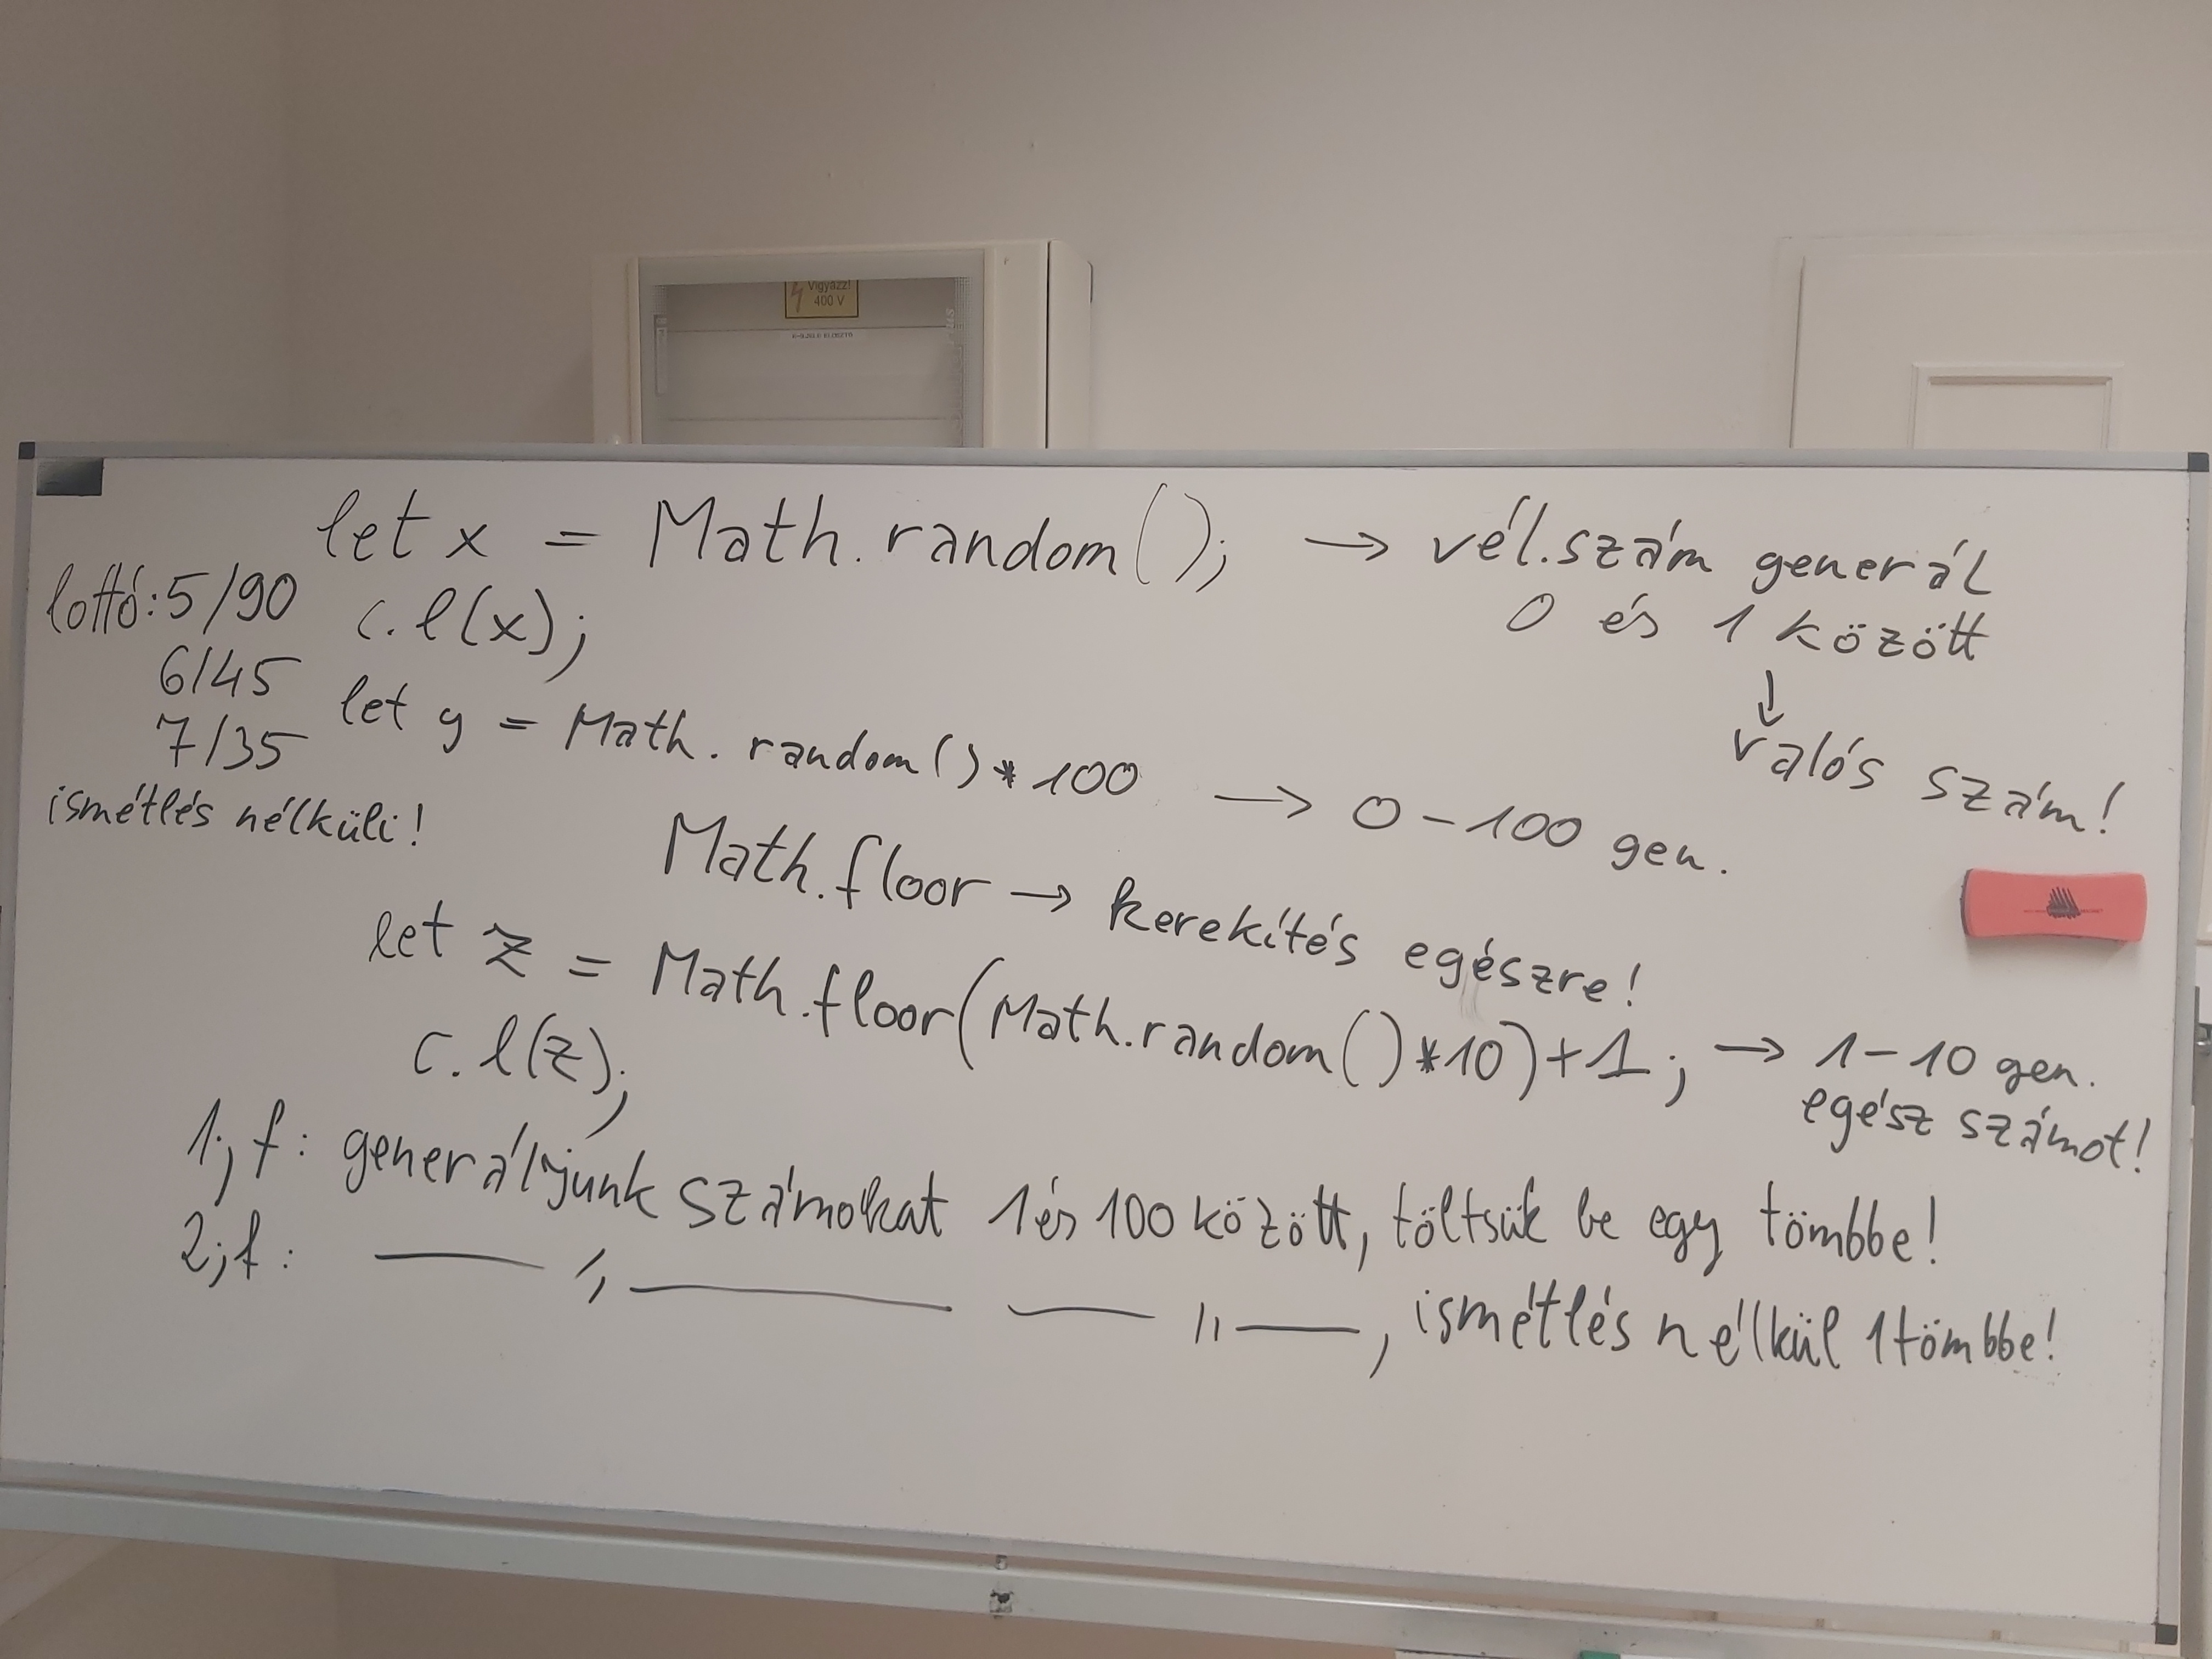 Vigyázz!
400 V
let x = Math.random(); → vél.szám generál
0 és 1 között
↓
valós szám!
lottó: 5/90
6/45
7/35
ismétlés nélküli!
c.l(x);
let y = Math.random()*100 → 0-100 gen.
Math.floor → kerekítés egészre!
let z = Math.floor(Math.random()*10)+1; → 1-10 gen.
egész számot!
c.l(z);
1; f: generáljunk számokat 1 és 100 között, töltsük be egy tömbbe!
2; f: —— 〃 —— —— 〃 ——, ismétlés nélkül 1 tömbbe!